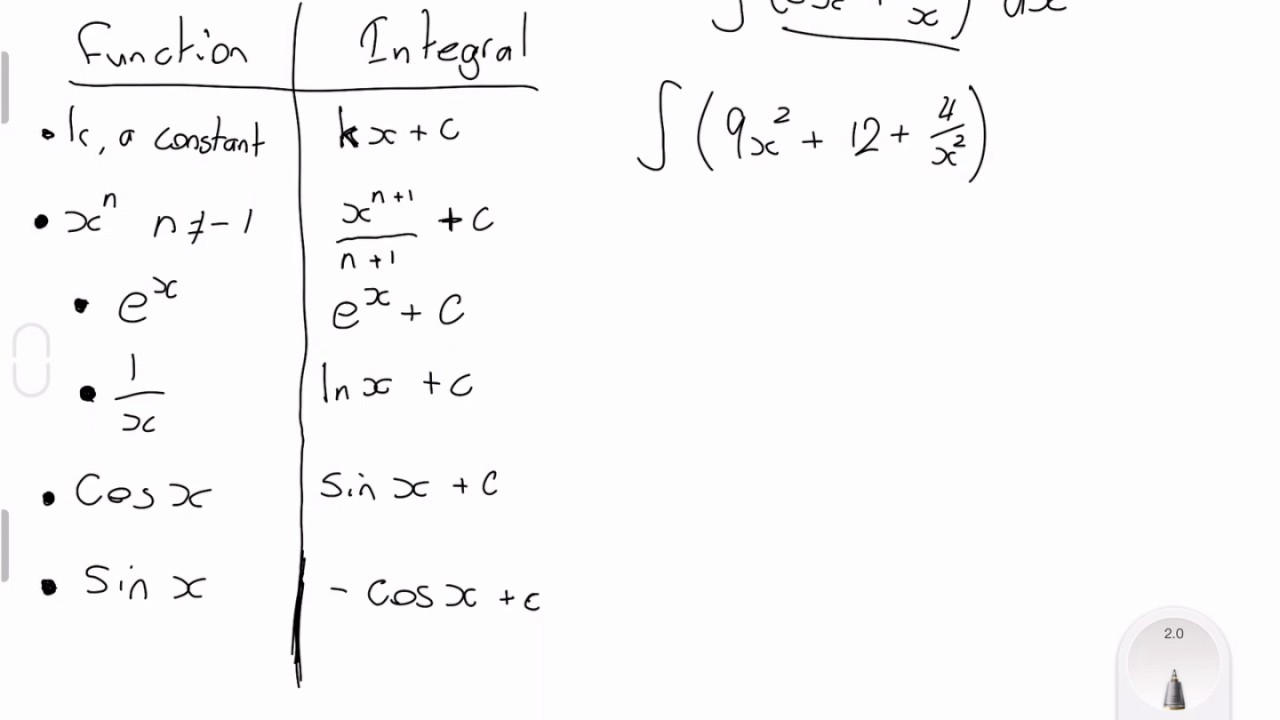 Function Integral
• k, a constant kx + c
• xⁿ n ≠ -1 xⁿ⁺¹/n+1 + c
• eˣ eˣ + c
• 1/x ln x + c
• Cos x Sin x + c
• Sin x - Cos x + c
x ) dx
∫ (9x² + 12 + 4/x²)
2.0